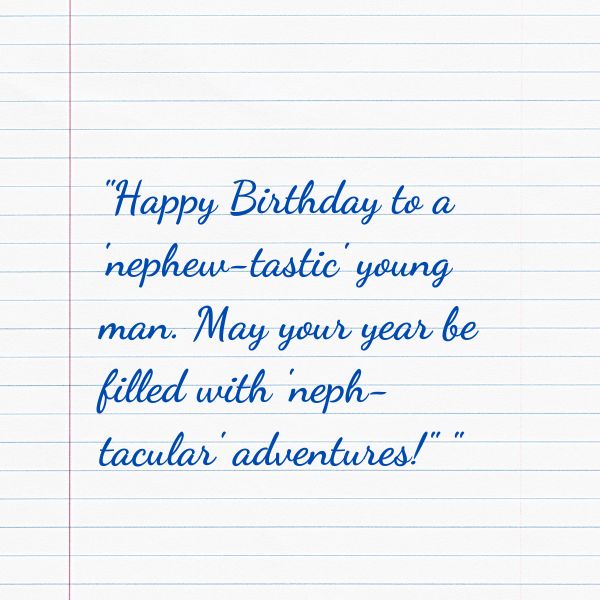 "Happy Birthday to a
'nephew-tastic' young
man. May your year be
filled with 'neph-
tacular' adventures!" "